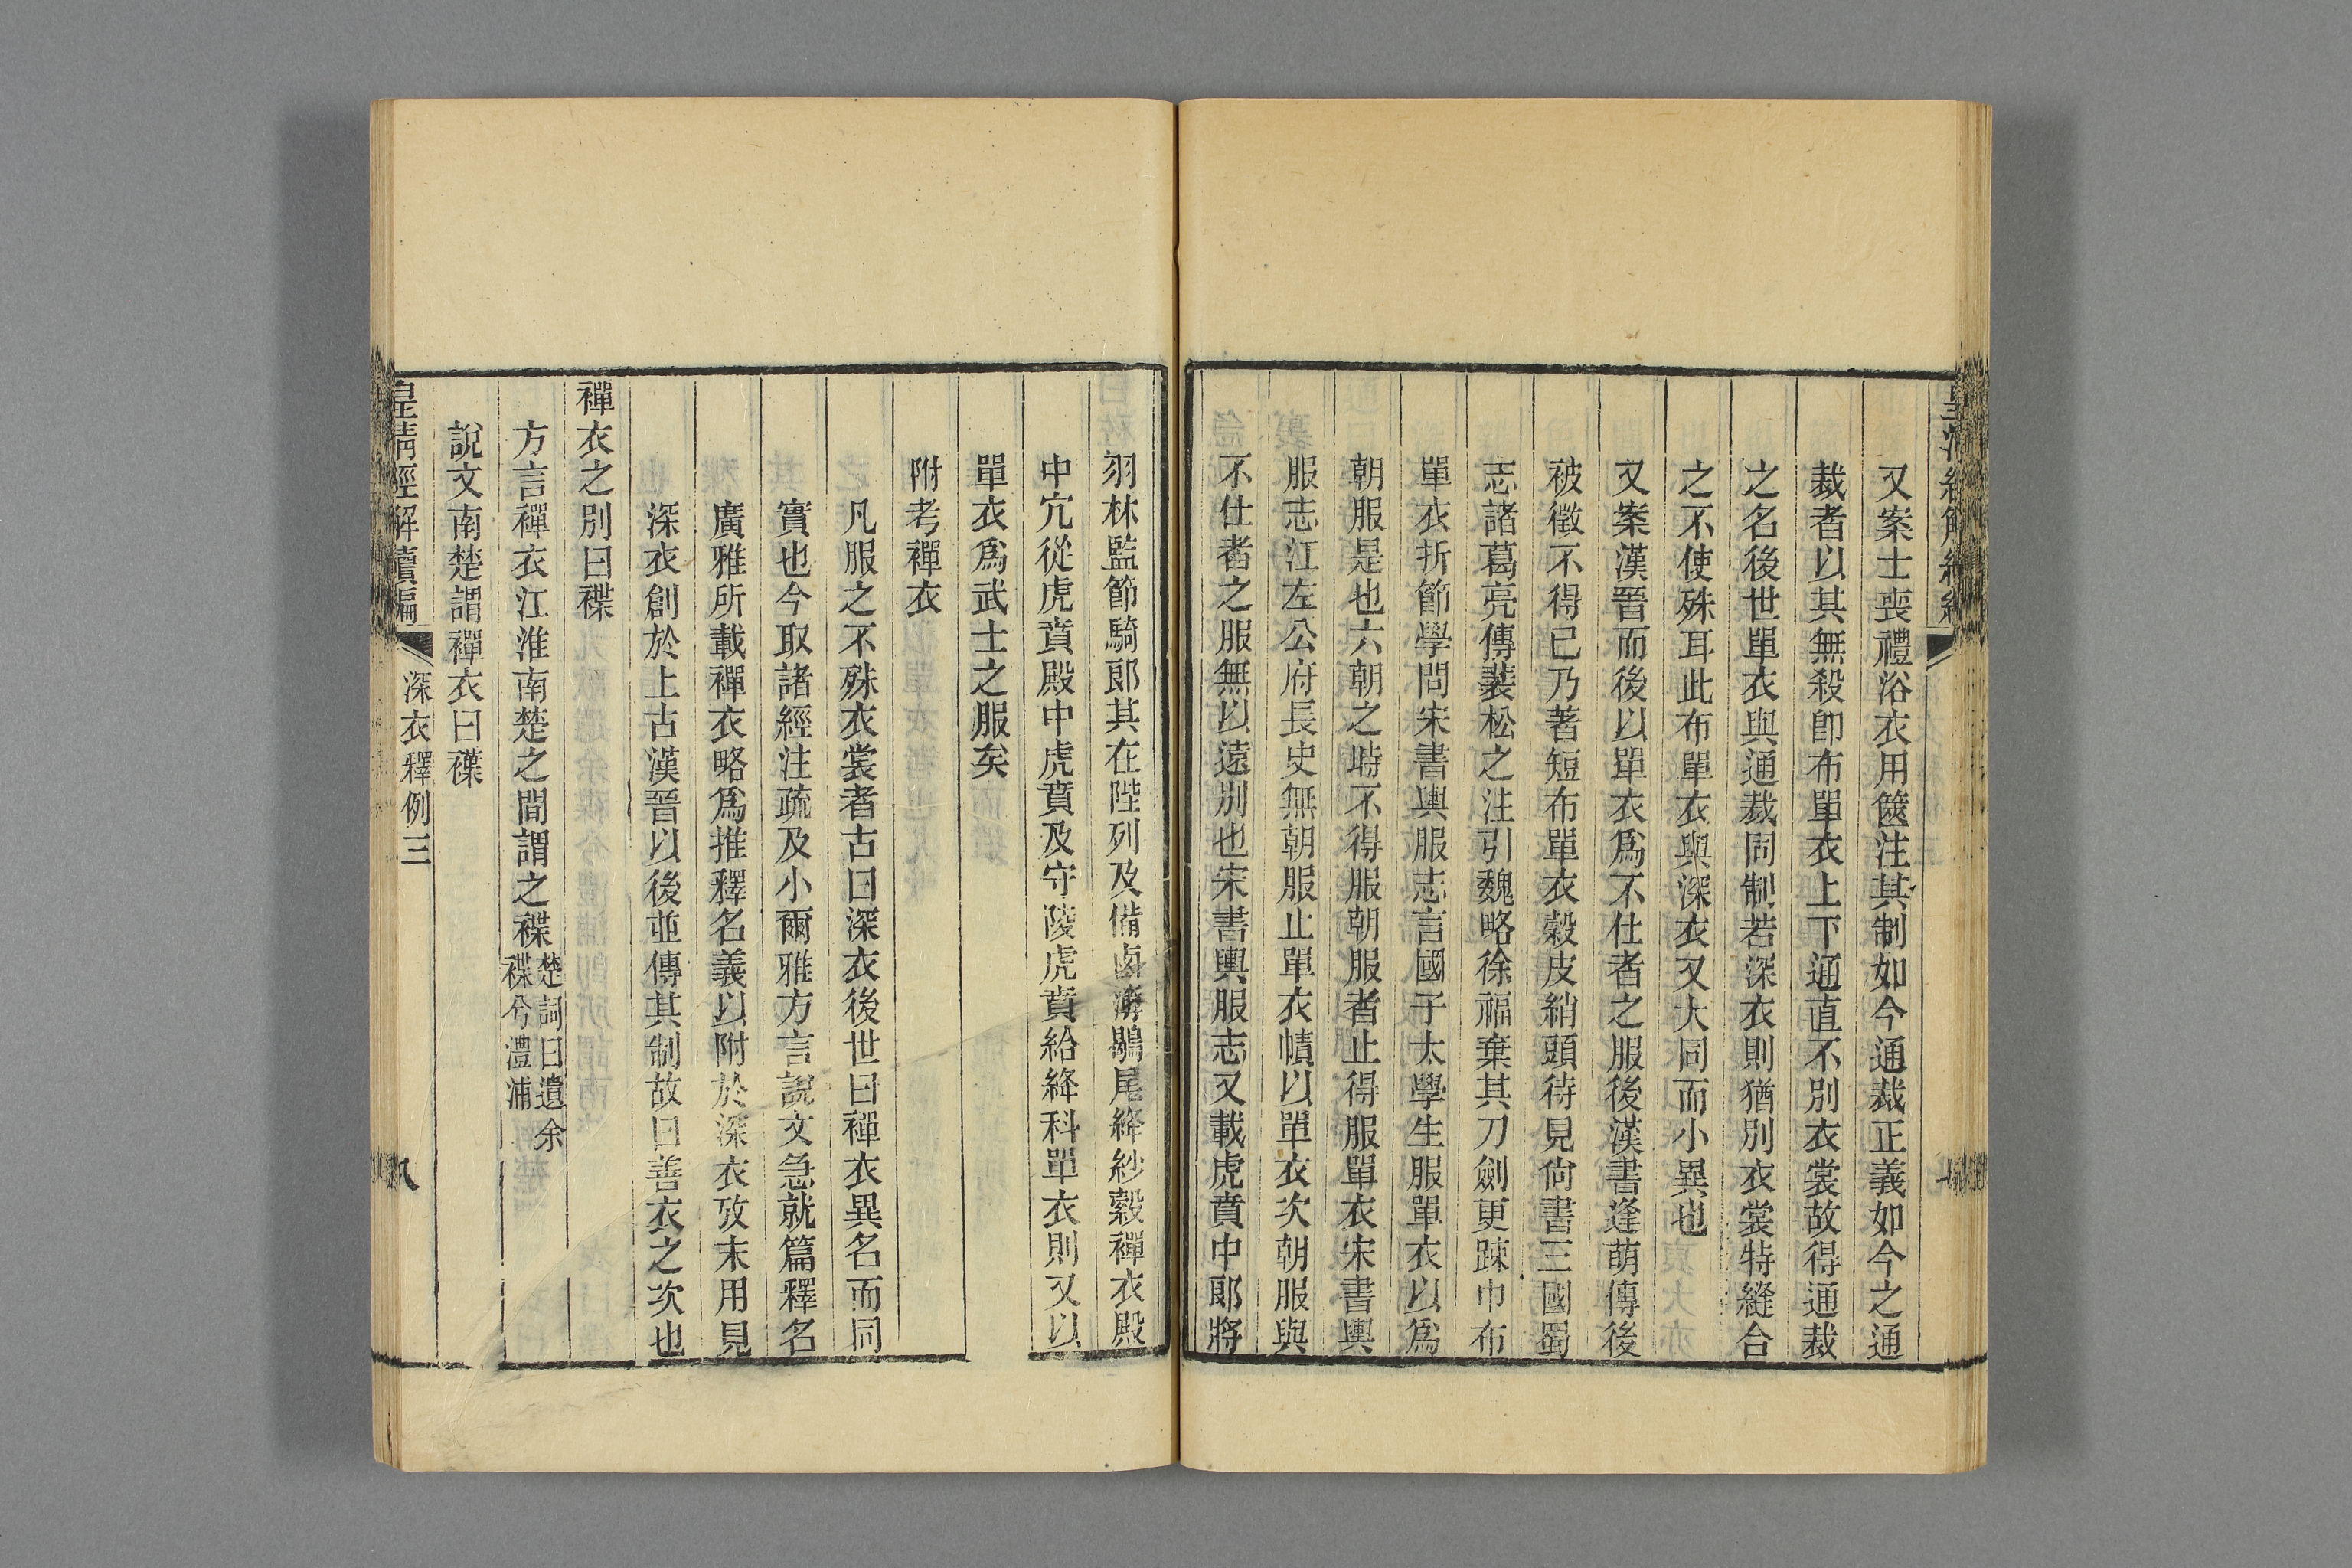 又案士喪禮浴衣用篋注其制如今通裁正義如今之通
裁者以其無殺卽布單衣上下通直不別衣裳故得通裁
之名後世單衣與通裁同制若深衣則猶別衣裳特縫合
之不使殊耳此布單衣與深衣又大同而小異也
又案漢晉而後以單衣爲不仕者之服後漢書逢萌傳後
被徵不得已乃著短布單衣縠皮綃頭待見尙書三國蜀
志諸葛亮傳裴松之注引魏略徐福棄其刀劍更踈巾布
單衣折節學問宋書輿服志言國子太學生服單衣以爲
朝服是也六朝之時不得服朝服者止得服單衣宋書輿
服志江左公府長史無朝服止單衣幘以單衣次朝服與
不仕者之服無以遠別也宋書輿服志又載虎賁中郞將
羽林監節騎郞其在陛列及備鹵簿鶡尾絳紗縠襌衣殿
中宂從虎賁殿中虎賁及守陵虎賁給絳科單衣則又以
單衣爲武士之服矣
附考襌衣
凡服之不殊衣裳者古曰深衣後世曰襌衣異名而同
實也今取諸經注疏及小爾雅方言說文急就篇釋名
廣雅所載襌衣略爲推釋名義以附於深衣攷末用見
深衣創於上古漢晉以後並傳其制故曰善衣之次也
襌衣之別曰褋
方言襌衣江淮南楚之間謂之褋楚詞曰遺余
褋兮澧浦
說文南楚謂襌衣曰褋
皇淸經解續編
深衣釋例三
八